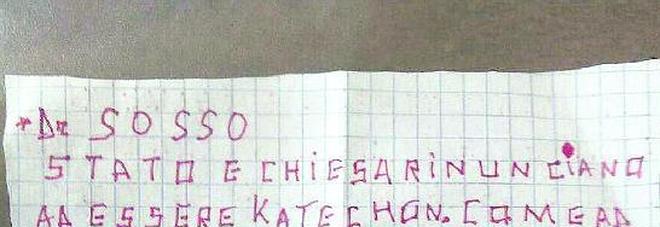 * DR SOSSO
STATO E CHIESA RINUNCIANO
AD ESSERE KATECHON. COME AD